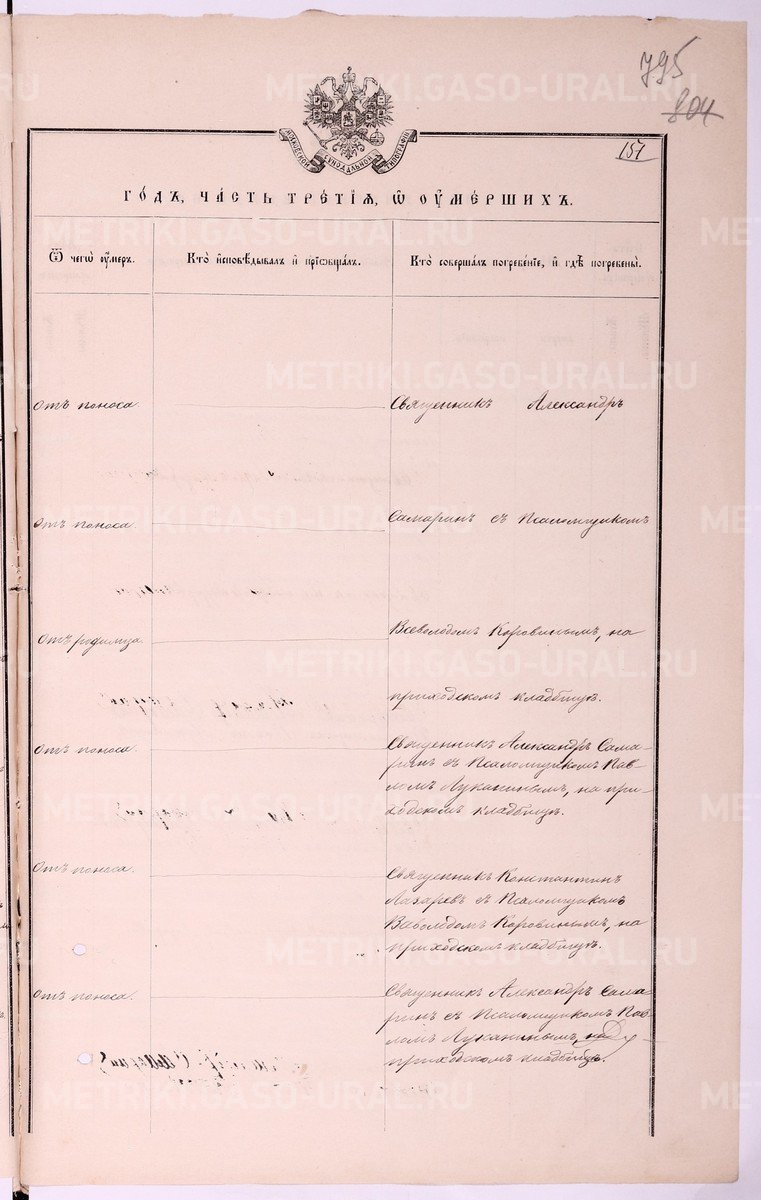 795
804
МОСКОВСКОЙ СѴНОДАЛЬНОЙ ТИПОГРАФІИ
151
ГО́ДЪ, ЧА́СТЬ ТРЕ́ТІѦ, Ѡ҆ ОУ҆МЕ́РШИХЪ.
Ѿ чегѡ̀ ᲂу҆́меръ.
Кто̀ и҆сповѣ́дывалъ и҆ приѻбща́лъ.
Кто̀ соверша́лъ погребе́нїе, и҆ гдѣ̀ погребены̀.
отъ поноса
Священникъ Александръ
отъ поноса
Самаринъ съ Псаломщикомъ
отъ родимца
Всеволодомъ Коровинымъ, на
приходскомъ кладбищѣ.
отъ поноса
Священникъ Александръ Сама-
ринъ съ Псаломщикомъ Пав-
ломъ Луканинымъ, на при-
ходскомъ кладбищѣ.
отъ поноса.
Священникъ Константинъ
Лазаревъ съ Псаломщикомъ
Всеволодомъ Коровинымъ, на
приходскомъ кладбищѣ.
отъ поноса.
Священникъ Александръ Сама-
ринъ съ Псаломщикомъ Пав-
ломъ Луканинымъ, на
приходскомъ кладбищѣ.
METRIKI.GASO-URAL.RU